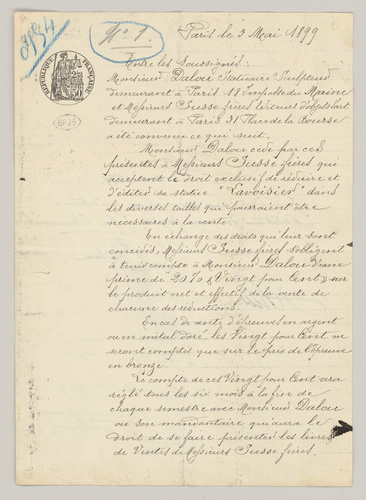 8984
N° 1
Paris le 3 Mai 1899
RÉPUBLIQUE FRANÇAISE
2
50
Entre les Soussignés:
Monsieur Dalou Statuaire Sculpteur
demeurant à Paris 18 Impasse du Maine
et Messieurs Susse frères éditeurs d'objets d'art
demeurant à Paris 31 Place de la Bourse
a été convenu ce qui suit.
Monsieur Dalou cède par ces
présentes à Messieurs Susse frères qui
acceptent le droit exclusif de réduire et
d'éditer sa statue "Lavoisier" dans
les diverses tailles qui pourraient être
nécessaires à la vente.
En échange des droits qui leur sont
concédés, Messieurs Susse frères s'obligent
à tenir compte à Monsieur Dalou d'une
prime de 20% "Vingt pour Cent" sur
le produit net et effectif de la vente de
chacune des réductions.
En cas de vente d'épreuves en argent
ou en métal doré, les Vingt pour Cent ne
seront comptés que sur le prix de l'épreuve
en bronze.
Le compte de ces Vingt pour Cent sera
réglé tous les six mois à la fin de
chaque semestre avec Monsieur Dalou
ou son mandataire qui aura le
droit de se faire présenter les livres
de Ventes de Messieurs Susse frères.